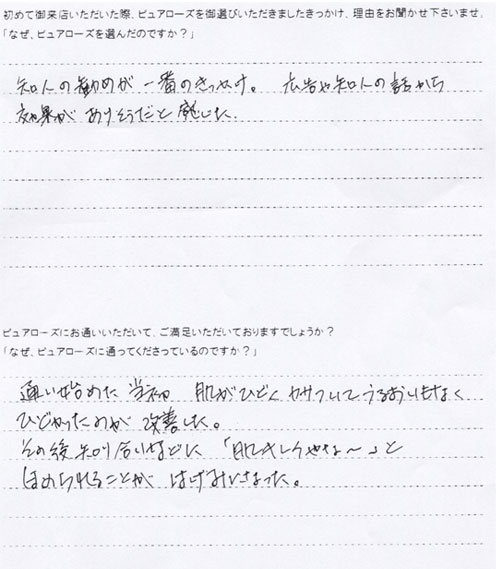 初めて御来店いただいた際、ピュアローズを御選びいただきましたきっかけ、理由をお聞かせ下さいませ。
「なぜ、ピュアローズを選んだのですか？」
知人の勧めが一番のきっかけ。 広告や知人の話から
効果がありそうだと感じた.
ピュアローズにお通いいただいて、ご満足いただいておりますでしょうか？
「なぜ、ピュアローズに通ってくださっているのですか？」
通い始めた当初 肌がひどくカサついてうるおいもなく
ひどかったのが 改善した。
その後知り合いなどに 「肌キレイやな～」と
ほめられることが はげみになった。